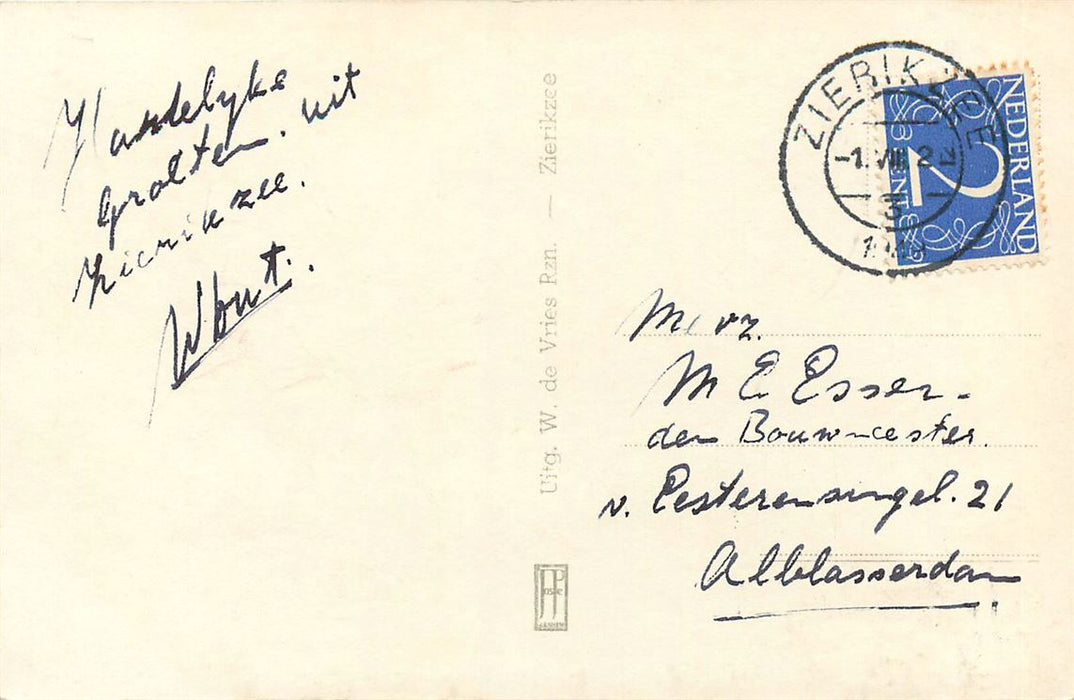 Hartelyke
groeten uit
Zierikzee.
Wout.
Uitg. W. de Vries Rzn. — Zierikzee
ZIERIKZEE
-1.VIII 2
NEDERLAND
2
CENT
Mevr.
M E Esser-
den Bouwmeester.
v. Eesterensingel. 21
Alblasserdam
JosPé
ARNHEM